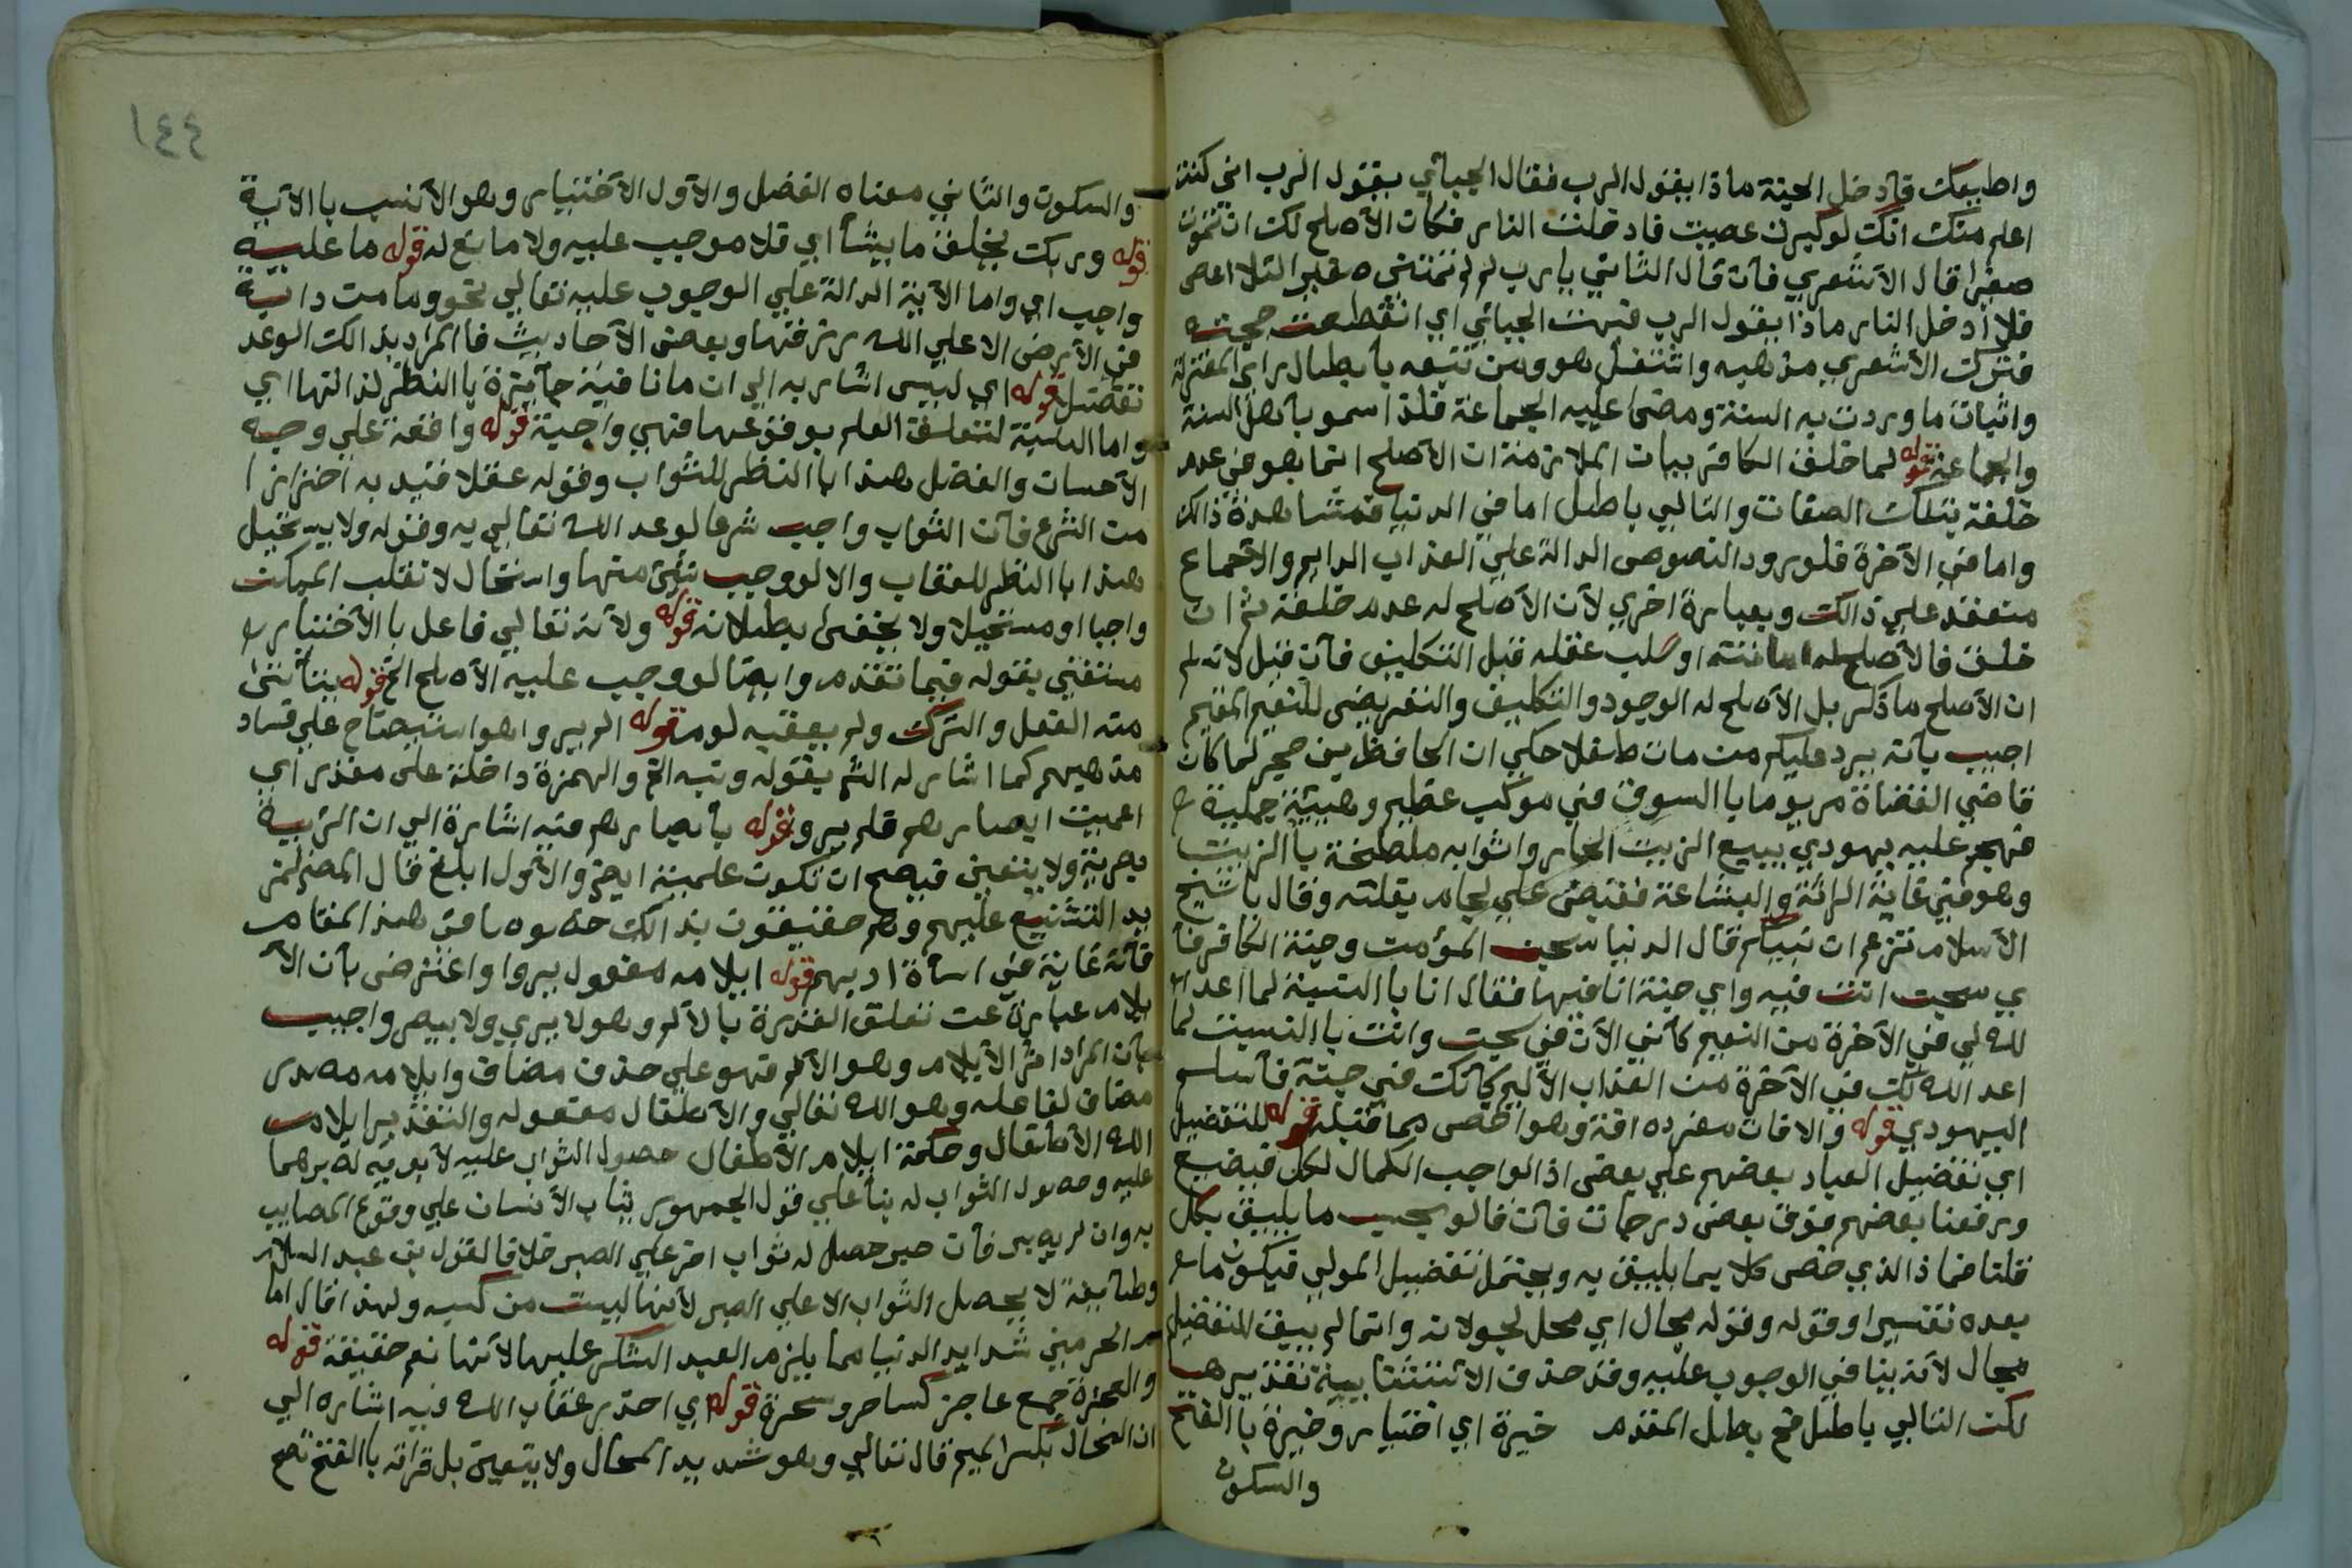 واطيعك فادخل الجنة ماذا يقول الرب فقال الجبائي يقول الرب اني كنت
اعلم منك انك لو كبرت عصيت فادخلت النار فكان الاصلح لك ان تموت
صغيرا قال الاشعري فان قال الثاني يارب لم لم تمتني صغيرا لئلا اعصى
فلا ادخل النار ماذا يقول الرب فبهت الجبائي اي انقطعت حجته
فترك الاشعري مذهبه واشتغل هو ومن تبعه بابطال راى المعتزلة
واثبات ما وردت به السنة ومضى عليه الجماعة فلذا سمو بأهل السنة
والجماعة قوله لما خلق الكافر بيان الملازمة ان الاصلح انما هو في عدم
خلقه بتلك الصفات والتالي باطل اما في الدنيا فمشاهدة ذالك
واما في الآخرة فلورود النصوص الدالة علي العذاب الدايم والاجماع
منعقد علي ذالك وبعبارة اخري لأن الأصلح له عدم خلقه ثم ان
خلق فالأصلح له اماتته او سلب عقله قبل التكليف فأن قيل لانه لم
ان الأصلح ماذكر بل الأصلح له الوجود والتكليف والتعريض للنعيم المقيم
اجيب بأنه يرد عليكم من مات طفلا حكي ان الحافظ بن حجر لما كان
قاضي القضاة مر يوما باالسوق في موكب عظيم وهيئة جميلة
فهجم عليه يهودي يبيع الزيت الحار واثوابه ملطخة باالزيت
وهو في غاية الرثة والبشاعة فقبض علي لجام بغلته وقال ياشيخ
الأسلام تزعم ان نبيكم قال الدنيا سجن المؤمن وجنة الكافر فأ
ي سجن انت فيه واي جنة انا فيها فقال انا باالنسبة لما اعد ا
لله لي في الآخرة من النعيم كأني الآن في سجن وانت باالنسبت لما
اعد الله لك في الآخرة من العذاب الأليم كأنك في جنة فأسلم
اليهودي قوله والافات مفرده افة وهو اخص مما قبله قوله للتفضيل
اي تفضيل العباد بعضهم علي بعض اذ الواجب الكمال لكل فيضيع
ورفعنا بعضهم فوق بعض درجات فأن قالو يجب ما يليق بكل
قلنا فما ذا الذي خص كلا بما يليق به ويحتمل تفضيل المولي فيكون ما
بعده تفسيرا وقوله وقوله مجال اي محل لجولانه وانما لم يبق للتفضيل
مجال لأنه ينافي الوجوب عليه وقد حذف الأستثنائية تقديرها
لكن التالي باطل فح بطل المقدم خيرة اي اختيار وخيرة باالفتح
والسكون
١٤٤
والسكون والثاني معناه الفضل والاول الأختيار وهو الأنسب باالآية
قوله وربك يخلق ما يشأ اي فلا موجب عليه ولا مانع له قوله ما عليه
واجب اي واما الأية الدالة علي الوجوب عليه تعالي نحو وما من دابة
في الأرض الا علي الله رزقها وبعض الأحاديث فاالمراد بذالك الوعد
تفضل قوله اي ليس اشار به الي ان ما نافية جأيزة باالنظر لذاتها اي
واما باالنسبة لتعلق العلم بوقوعها فهي واجبة قوله وافقة علي وجه
الأحسان والفضل هذا باالنظر للثواب وقوله عقلا قيد به احترازا
من الشرع فأن الثواب واجب شرعا لوعد الله تعالي به وقوله ولا يستحيل
هذا باالنظر للعقاب والا لو وجب شئ منها واستحال لانقلب الممكن
واجبا او مستحيلا ولا يخفى بطلانه قوله ولأنه تعالي فاعل باالأختيار
مستغني بقوله فيما تقدم وايضا لو وجب عليه الأصلح الخ قوله يتأتى
منه الفعل والترك ولم يعقبه لوم قوله الم يروا هو استيضاح علي فساد
مذهبهم كما اشار له الش بقوله وتبه الخ والهمزة داخلة على مقدر اي
اعميت ابصارهم فلم يروا قوله بأبصارهم فيه اشارة الي ان الرؤية
بصرية ولا يتعين فيصح ان تكون علمية ايض والأول ابلغ قال المصنف
يد التشنيع عليهم وهم حقيقون بذالك في هذا المقام
فأنه غاية في اسأة ادبهم قوله ايلامه مفعول يروا واعترض بأن الأ
يلام عبارة عن تعلق القدرة باالألم وهو لا يري ولا يبصر واجيب
بأن المراد اثر الأيلام وهو الألم فهو علي حذف مضاف وايلامه مصدر
مضاف لفاعله وهو الله تعالي والأطفال مفعوله والتقدير ايلامـ
الله الأطفال وحكمة ايلام الأطفال حصول الثواب عليه لأبويه لصبرهما
عليه وحصول الثواب له بنأ علي قول الجمهور يثاب الأنسان علي وقوع المصايب
به وان لم يصبر فأن صبر حصل له ثواب اخر علي الصبر خلافا لقول بن عبد السلام
وطأيفة لا يحصل الثواب الا علي الصبر لأنها ليست من كسبه ولهذا قال اما
م الحرمين شدايد الدنيا مما يلزم العبد الشكر عليها لأنها نعم حقيقة قوله
والعجزة جمع عاجز كساحر وسحرة قوله اي احذر عقاب الله فيه اشاره الي
ان المحال بكسر الميم قال تعالي وهو شديد المحال ولا يتعين بل قرائه باالفتح تصح